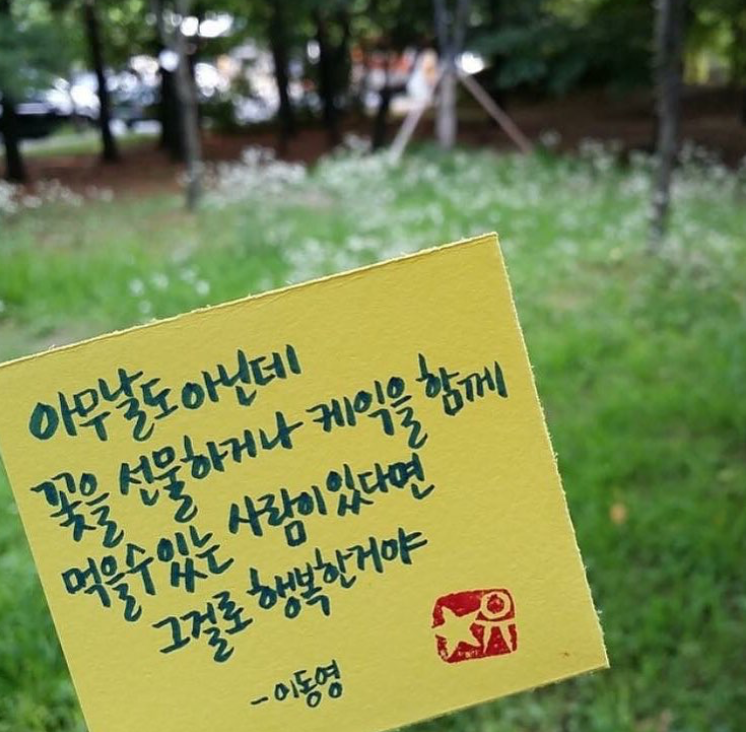 아무날도 아닌데
꽃을 선물하거나 케익을 함께
먹을수 있는 사람이 있다면
그걸로 행복한거야
-이동영